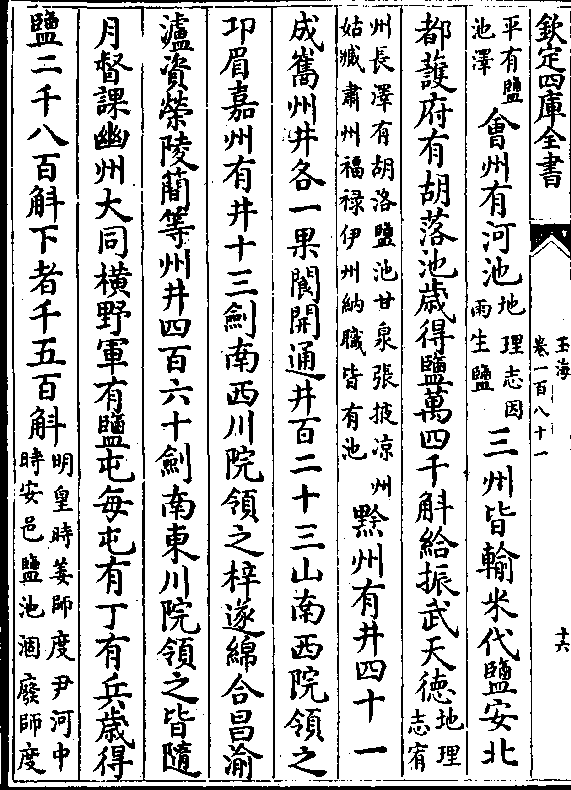 欽定四庫全書
玉海
卷一百八十一
十六
平有鹽
池澤
會州有河池
地理志因
雨生鹽
三州皆輸米代鹽安北
都䕶府有胡落池歲得鹽萬四千斛給振武天徳
地理
志宥
州長澤有胡洛鹽池甘泉張掖凉州
姑臧肅州福禄伊州納職皆有池
黔州有井四十一
成巂州井各一果閬開通井百二十三山南西院領之
卭眉嘉州有井十三劒南西川院領之梓遂綿合昌渝
瀘資榮陵蕳等州井四百六十劒南東川院領之皆隨
月督課幽州大同横野軍有鹽屯每屯有丁有兵歲得
鹽二千八百斛下者千五百斛
明皇時姜師度尹河中
時安邑鹽池涸廢師度